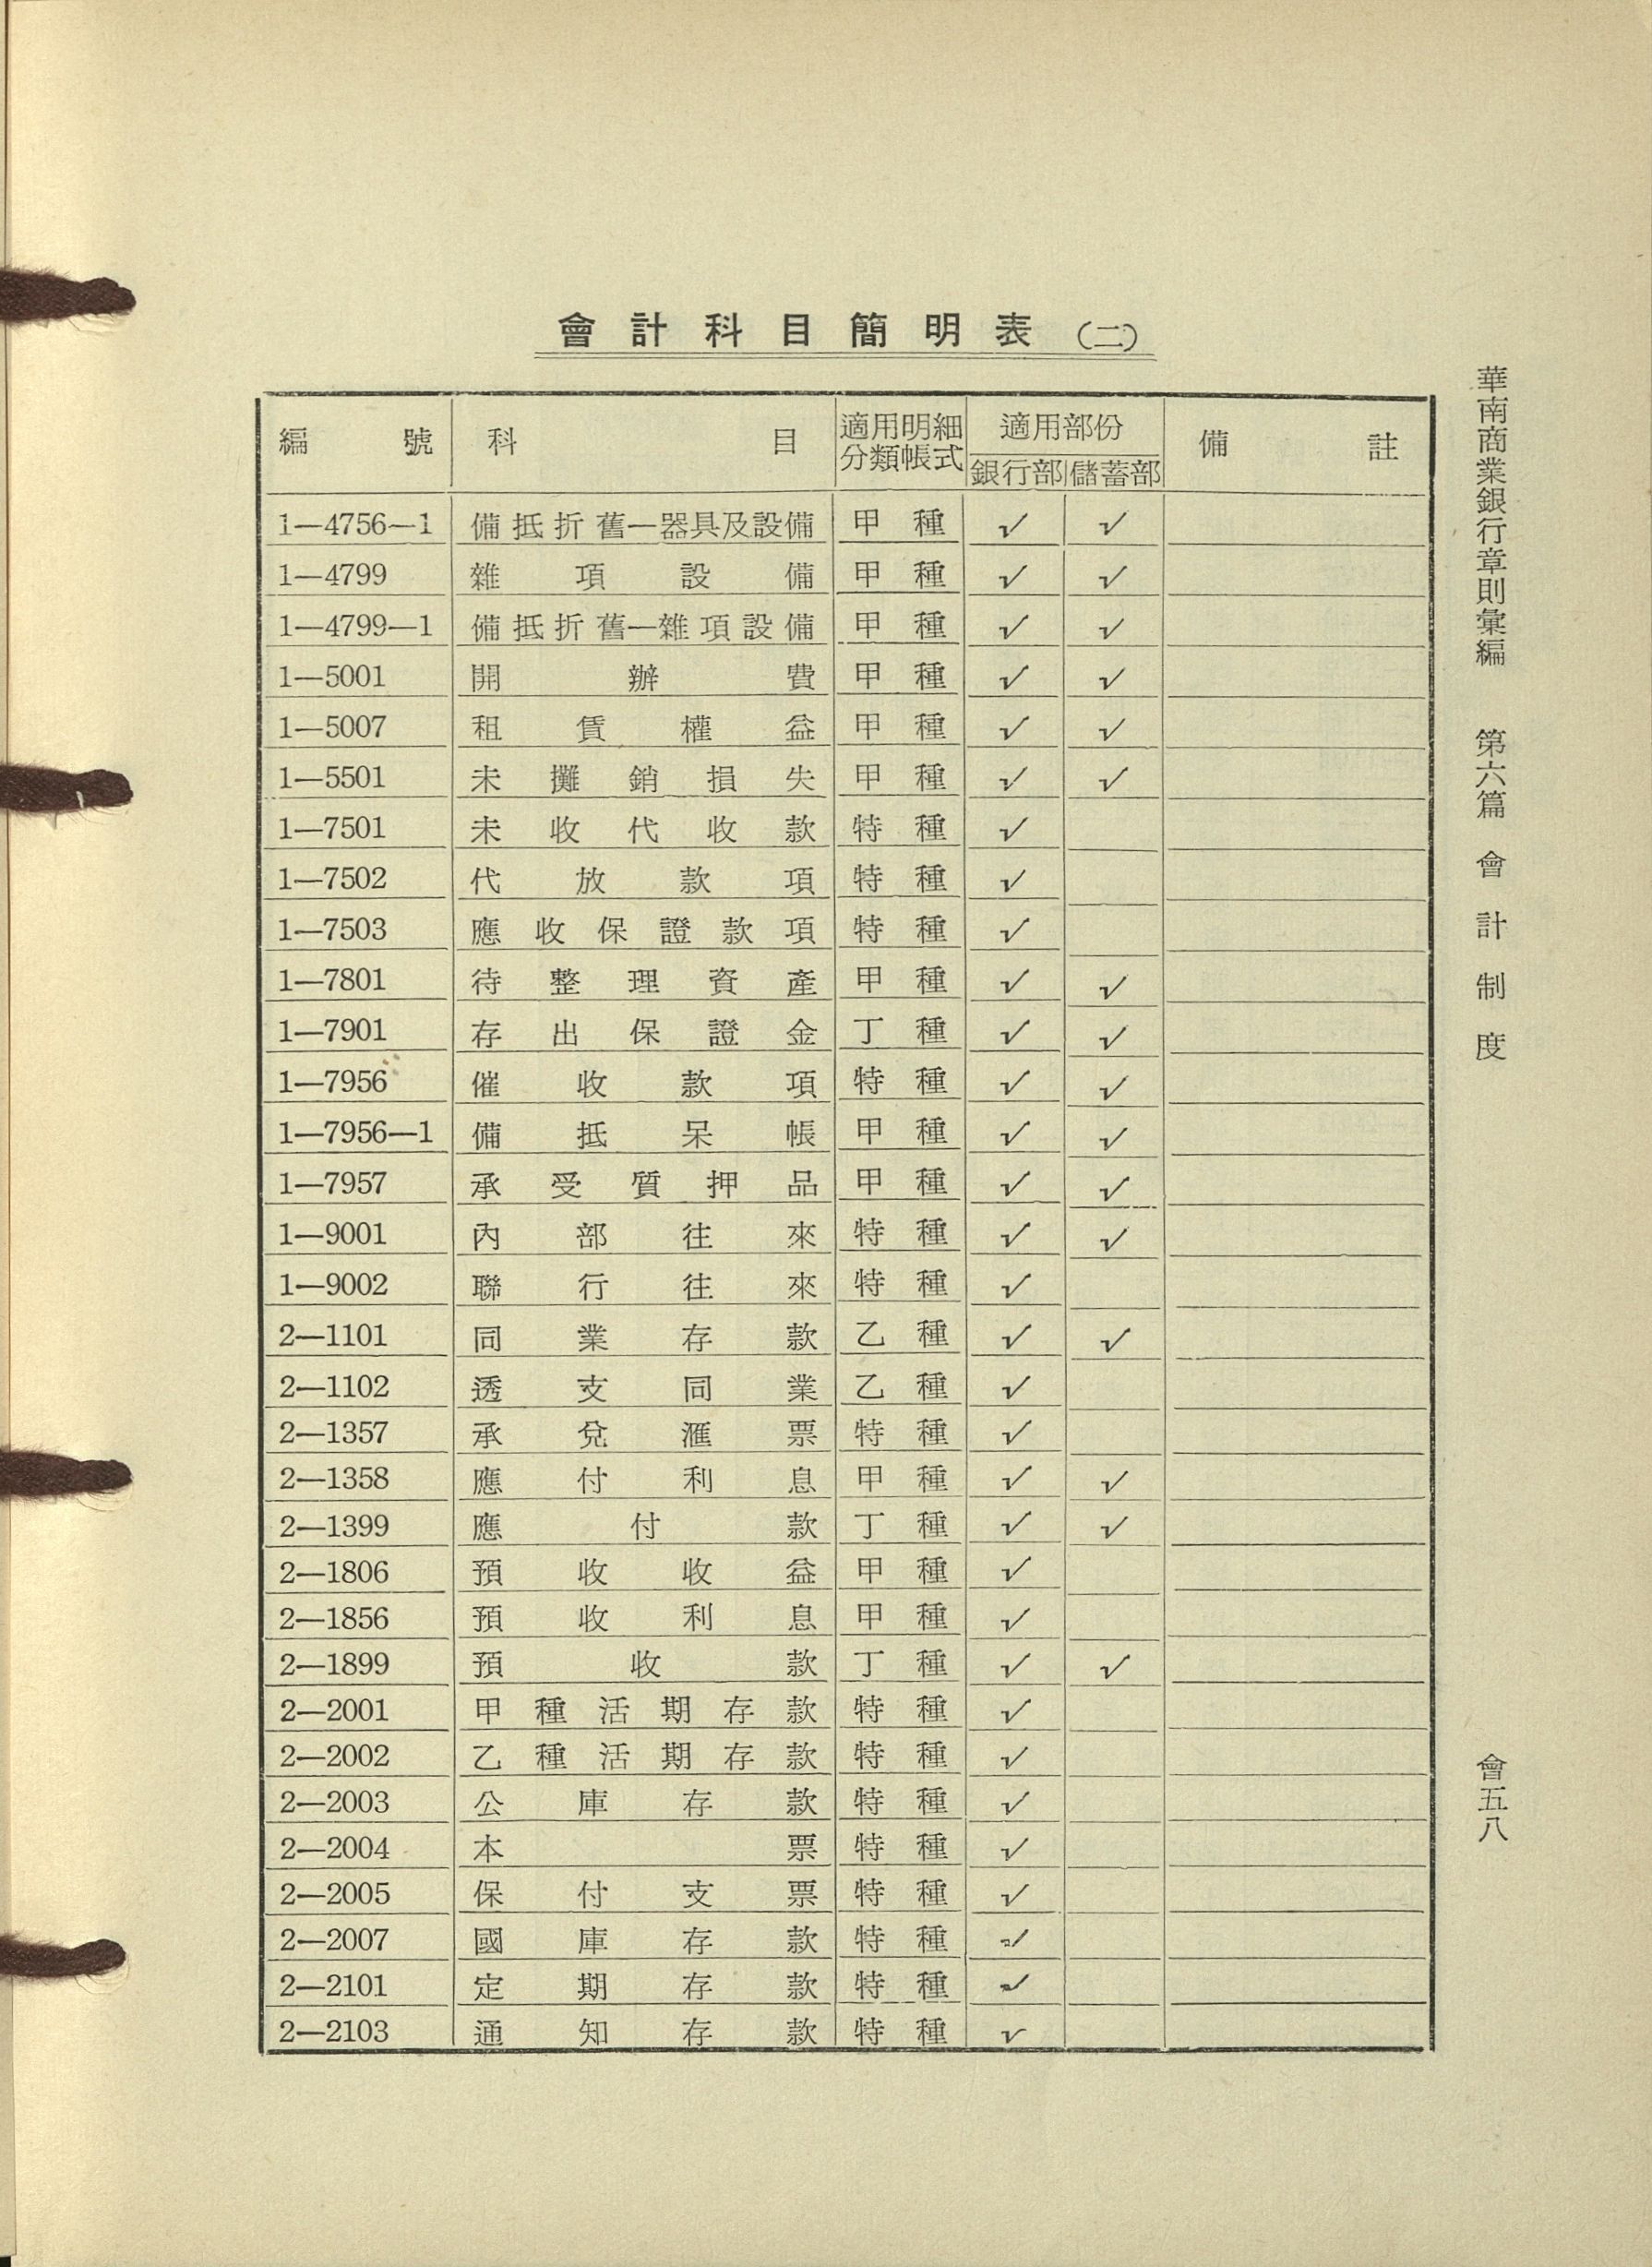 會計科目簡明表(二)
編號 科目 適用明細分類帳式 適用部份 備註
銀行部 儲蓄部
1—4756—1 備抵折舊—器具及設備 甲種 ✓ ✓
1—4799 雜項設備 甲種 ✓ ✓
1—4799—1 備抵折舊—雜項設備 甲種 ✓ ✓
1—5001 開辦費 甲種 ✓ ✓
1—5007 租賃權益 甲種 ✓ ✓
1—5501 未攤銷損失 甲種 ✓ ✓
1—7501 未收代收款 特種 ✓
1—7502 代放款項 特種 ✓
1—7503 應收保證款項 特種 ✓
1—7801 待整理資產 甲種 ✓ ✓
1—7901 存出保證金 丁種 ✓ ✓
1—7956 催收款項 特種 ✓ ✓
1—7956—1 備抵呆帳 甲種 ✓ ✓
1—7957 承受質押品 甲種 ✓ ✓
1—9001 內部往來 特種 ✓ ✓
1—9002 聯行往來 特種 ✓
2—1101 同業存款 乙種 ✓ ✓
2—1102 透支同業 乙種 ✓
2—1357 承兌滙票 特種 ✓
2—1358 應付利息 甲種 ✓ ✓
2—1399 應付款 丁種 ✓ ✓
2—1806 預收收益 甲種 ✓
2—1856 預收利息 甲種 ✓
2—1899 預收款 丁種 ✓ ✓
2—2001 甲種活期存款 特種 ✓
2—2002 乙種活期存款 特種 ✓
2—2003 公庫存款 特種 ✓
2—2004 本票 特種 ✓
2—2005 保付支票 特種 ✓
2—2007 國庫存款 特種 ✓
2—2101 定期存款 特種 ✓
2—2103 通知存款 特種 ✓
華南商業銀行章則彙編 第六篇 會計制度 會五八